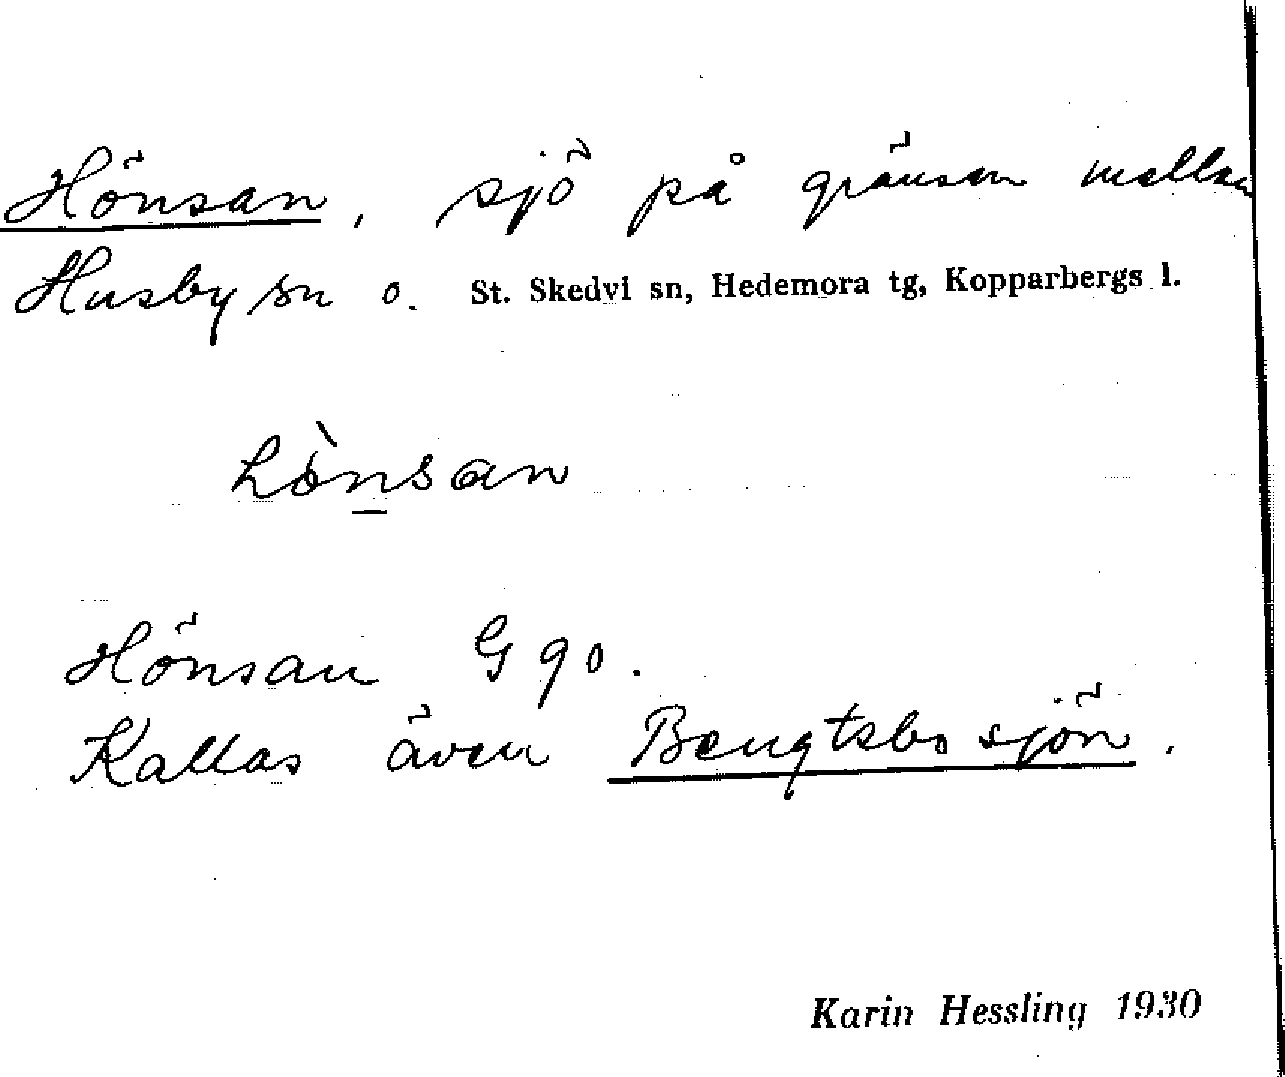 Hönsan, sjö på gränsen mellan
Husby sn o. St. Skedvi sn, Hedemora tg, Kopparbergs l.
hǿ̀n̲san
Hönsan G 90.
Kallas även Bengtsbosjön.
Karin Hessling 1930